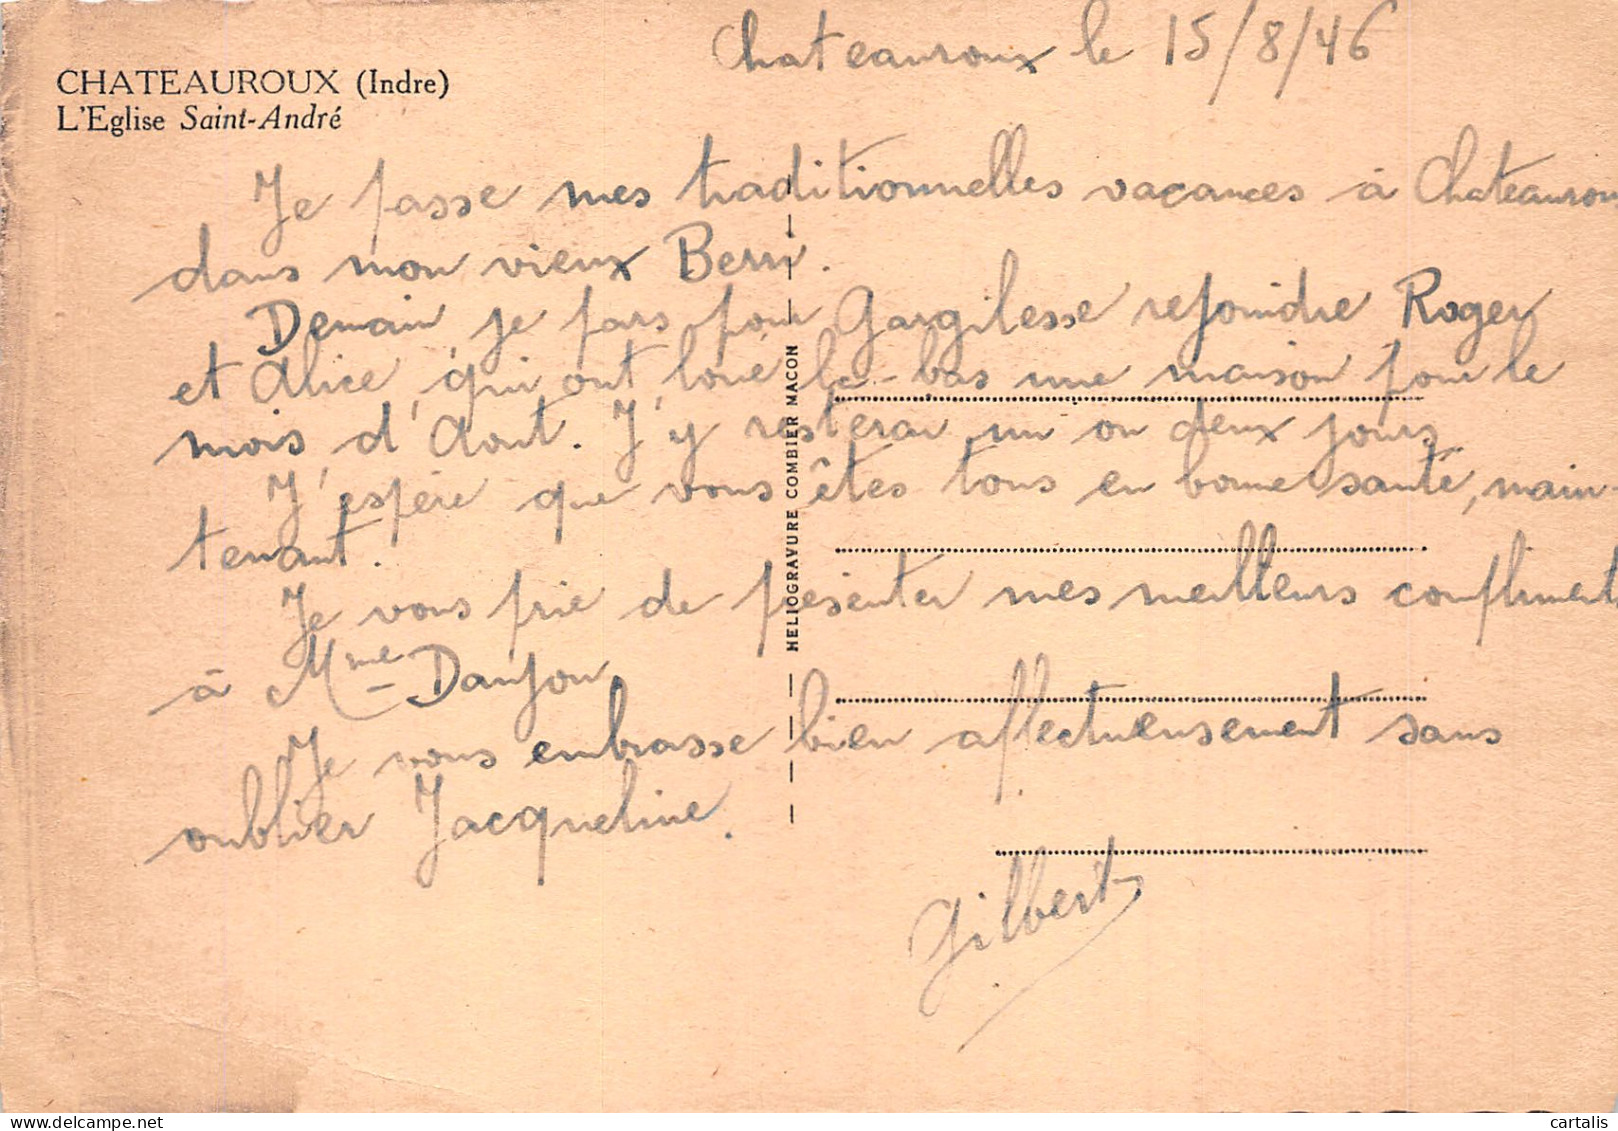 Chateauroux le 15/8/46
CHATEAUROUX (Indre)
L'Eglise Saint-André
Je passe mes traditionnelles vacances à Chateauroux
dans mon vieux Berri.
Demain, je pars pour Gargilesse rejoindre Roger
et Alice, qui ont loué là-bas une maison pour le
mois d'Aout. J'y resterai un ou deux jours.
J'espère que vous êtes tous en bonne santé, main-
tenant.
Je vous prie de présenter mes meilleurs compliments
à Mme Danjou
Je vous embrasse bien affectueusement sans
oublier Jacqueline.
Gilbert
HELIOGRAVURE COMBIER MACON
cartalis